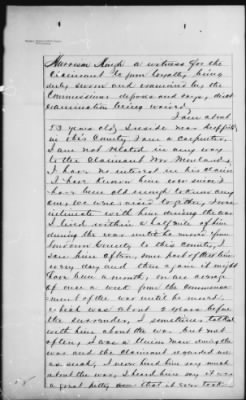 Harrison Haugh a witness for the
Claimant to prove loyalty being
duly sworn and examined by the
Commissioner deposes and says, direct
examination being waived
I am about
53 years old, I reside near
in this County, I am a Carpenter,
I am not related in any way
to the Claimant Mr
I have no interest in his claim
I have known him ever since I
have been old enough to know any
one, we were raised together, I was
intimate with him during the war
I lived within a half mile of him
during the war until he moved from
Loudoun County to this County, I
saw him often, some part of the time
every day and then again it might
have been a month, on an average
of once a week from the commence-
ment of the war until he moved
which was about 2 years before
the surrender, I sometimes talked
with him about the war but not
often, I was a Union man during the
war and the claimant regarded me
as such, I never heard him say much
about the war, I heard him say it was
a great pity that it ever took